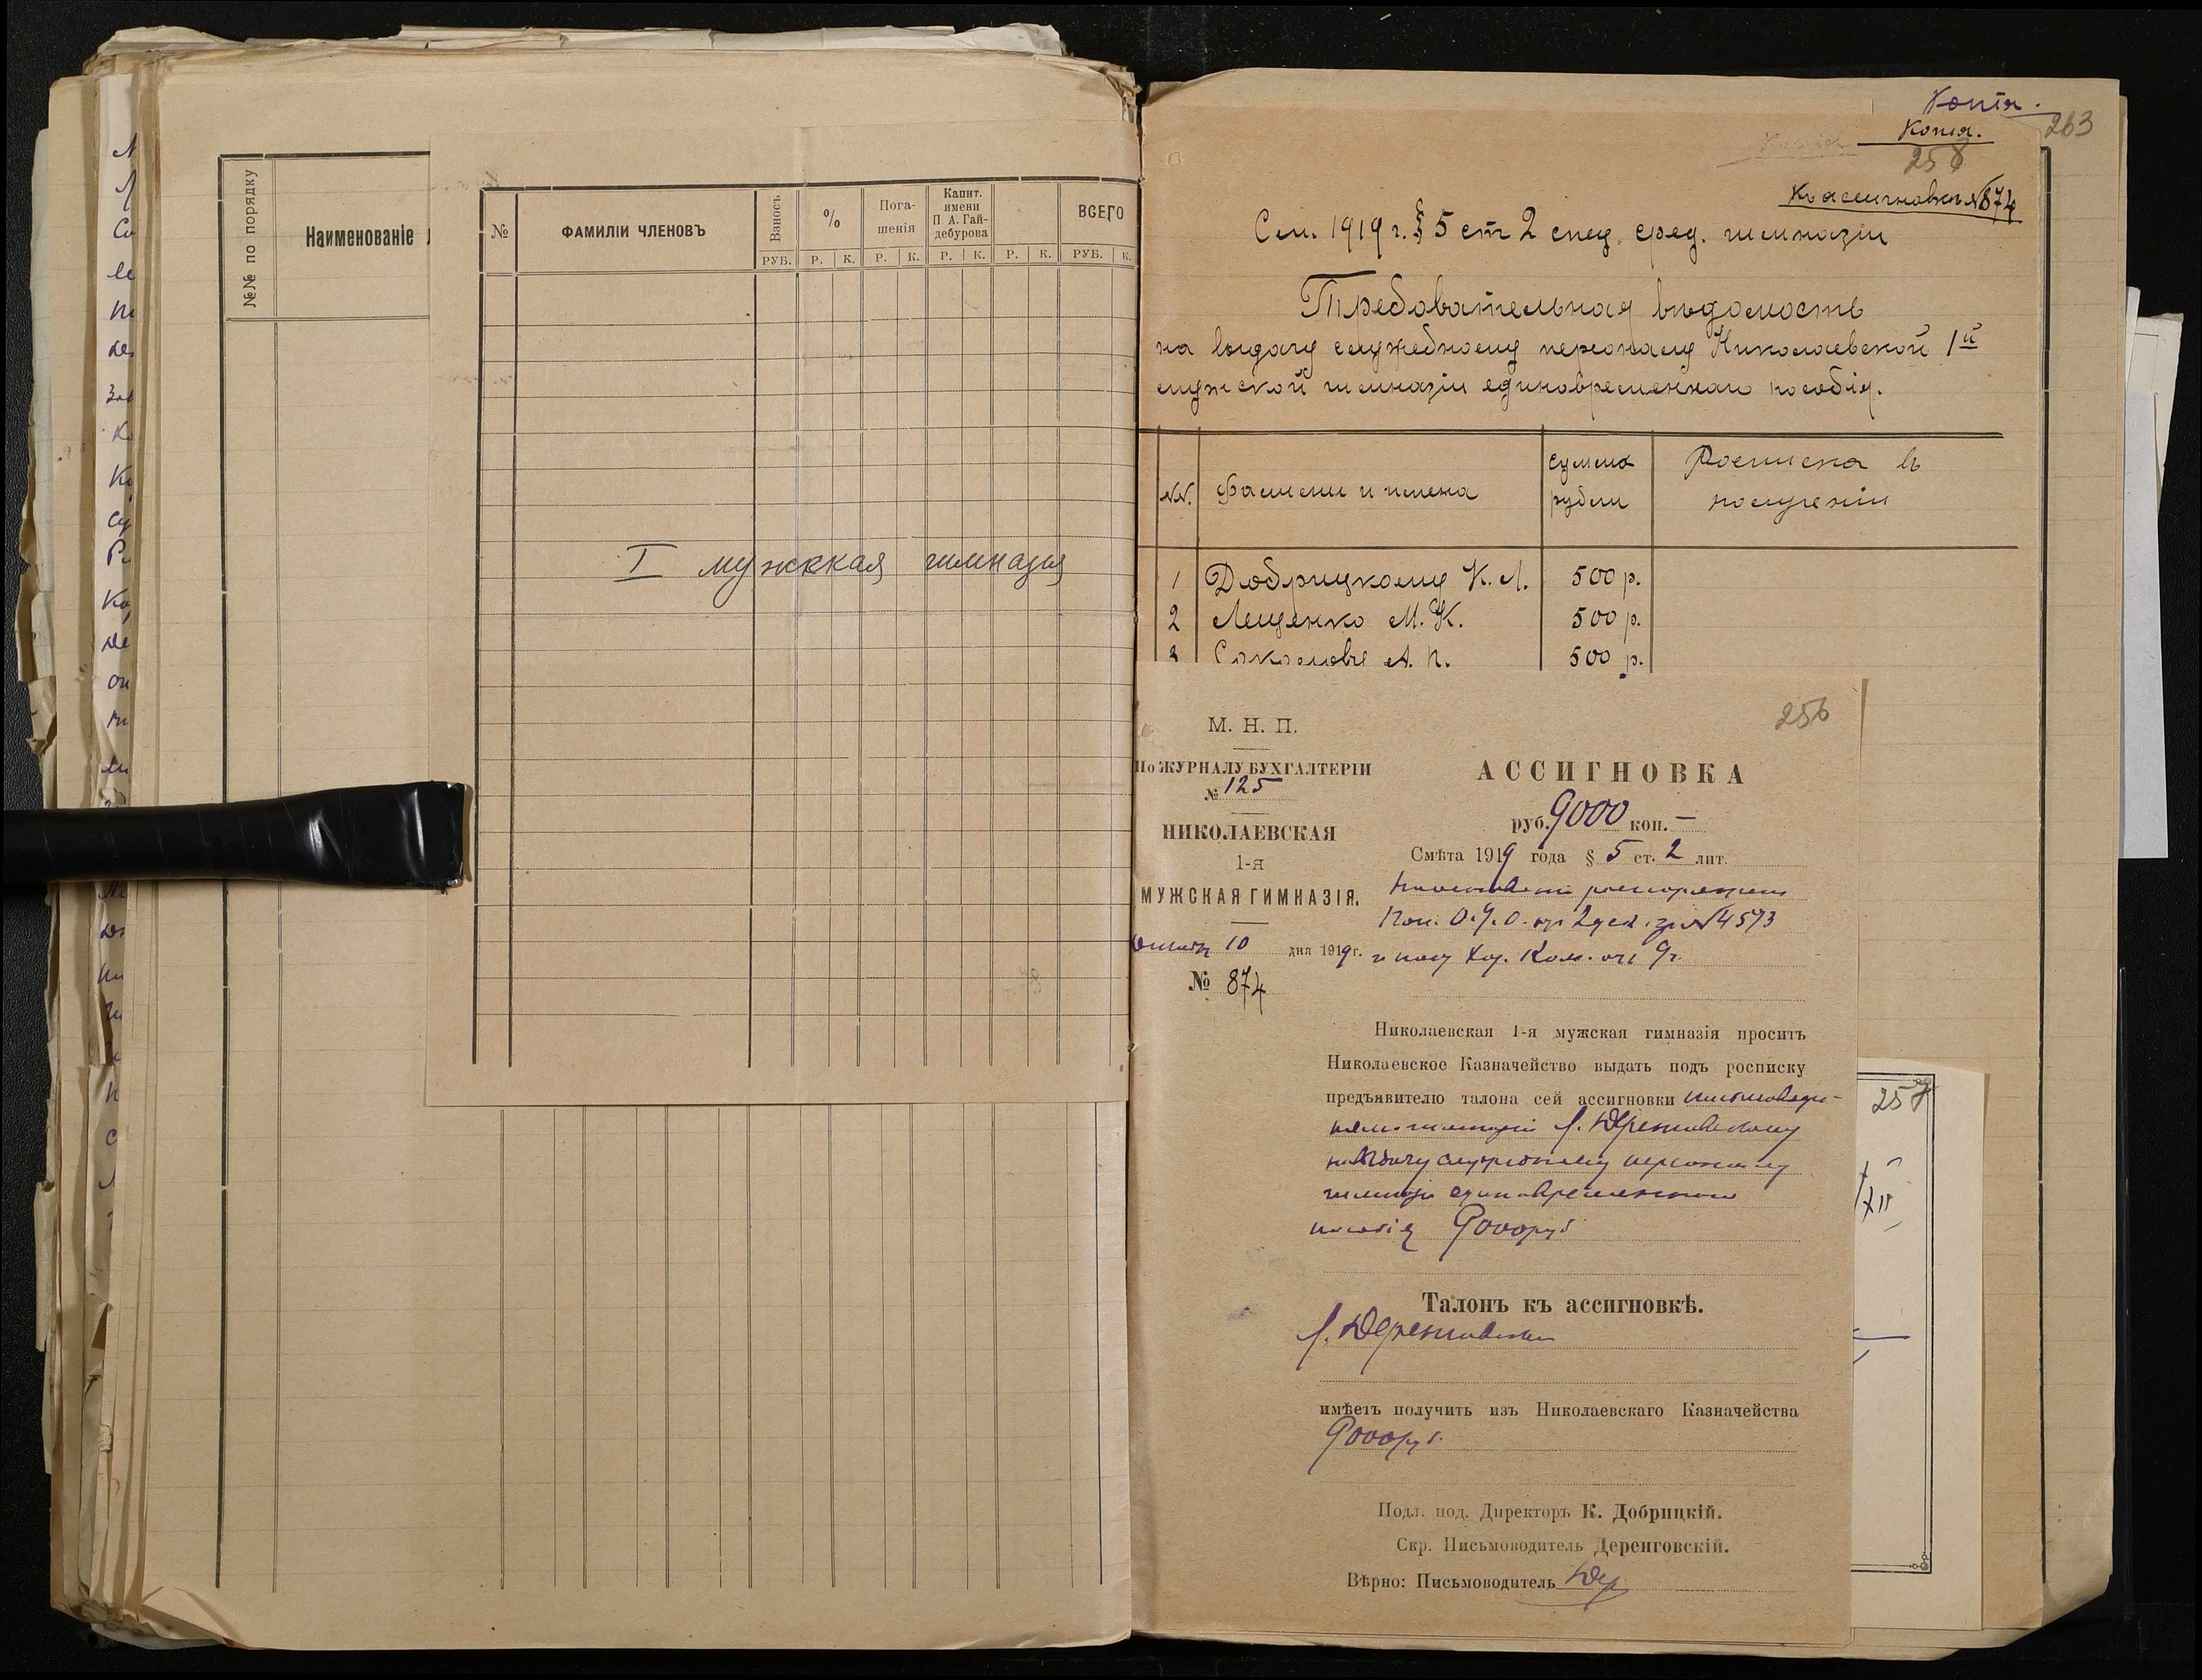 №№ по порядку
Наименованіе
№
ФАМИЛІИ ЧЛЕНОВЪ
Взносъ
%
Пога-
шенія
Капит.
имени
П. А. Гай-
дебурова
ВСЕГО
РУБ. Р. К. Р. К. Р. К. Р. К. РУБ. К.
I мужская гимназія
Копія.
Копія.
263
258
Къ ассигновкѣ №874
См. 1919 г. § 5 ст 2 спец. сред. гимназіи
Требовательная вѣдомость
на выдачу служебному персоналу Николаевской 1й
мужской гимназіи единовременнаго пособія.
№№.
Фамиліи и имена
сумма
рубли
Росписка въ
полученіи
1 Добрицкому К. Л. 500 р.
2 Лещенко М. К. 500 р.
3 Соколовъ А. П. 500 р.
256
М. Н. П.
По ЖУРНАЛУ БУХГАЛТЕРІИ
№ 125
НИКОЛАЕВСКАЯ
1-я
МУЖСКАЯ ГИМНАЗІЯ.
10 дня 1919 г.
№ 874
АССИГНОВКА
руб. 9000 коп. —
Смѣта 1919 года § 5 ст. 2 лит.
Поп. О. У. О. №4573
Хоз. Ком. от 9 г.
Николаевская 1-я мужская гимназія проситъ
Николаевское Казначейство выдать подъ росписку
предъявителю талона сей ассигновки письмоводи-
телю гимназіи Деренговскому
на выдачу служебному персоналу
гимназіи единовременнаго
пособія 9000 руб
Талонъ къ ассигновкѣ.
Деренговскій
имѣетъ получить изъ Николаевскаго Казначейства
9000 руб.
Подл. под. Директоръ К. Добрицкій.
Скр. Письмоводитель Деренговскій.
Вѣрно: Письмоводитель
257